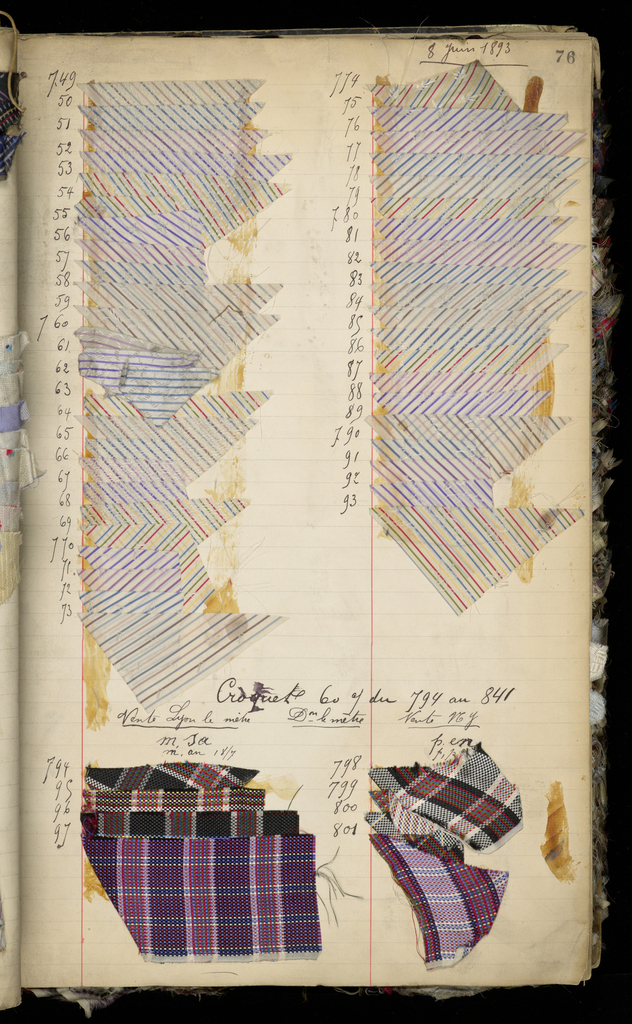 8 Juin 1893
76
749
50
51
52
53
54
55
56
57
58
59
760
61
62
63
64
65
66
67
68
69
770
71
72
73
774
75
76
77
78
79
780
81
82
83
84
85
86
87
88
89
790
91
92
93
Croquette 60 c/ du 794 au 841
Vente Lyon le mètre
Don le mètre
Vente NY
m.sa
p.en
m.au 18/7
794
95
96
97
798
799
800
801